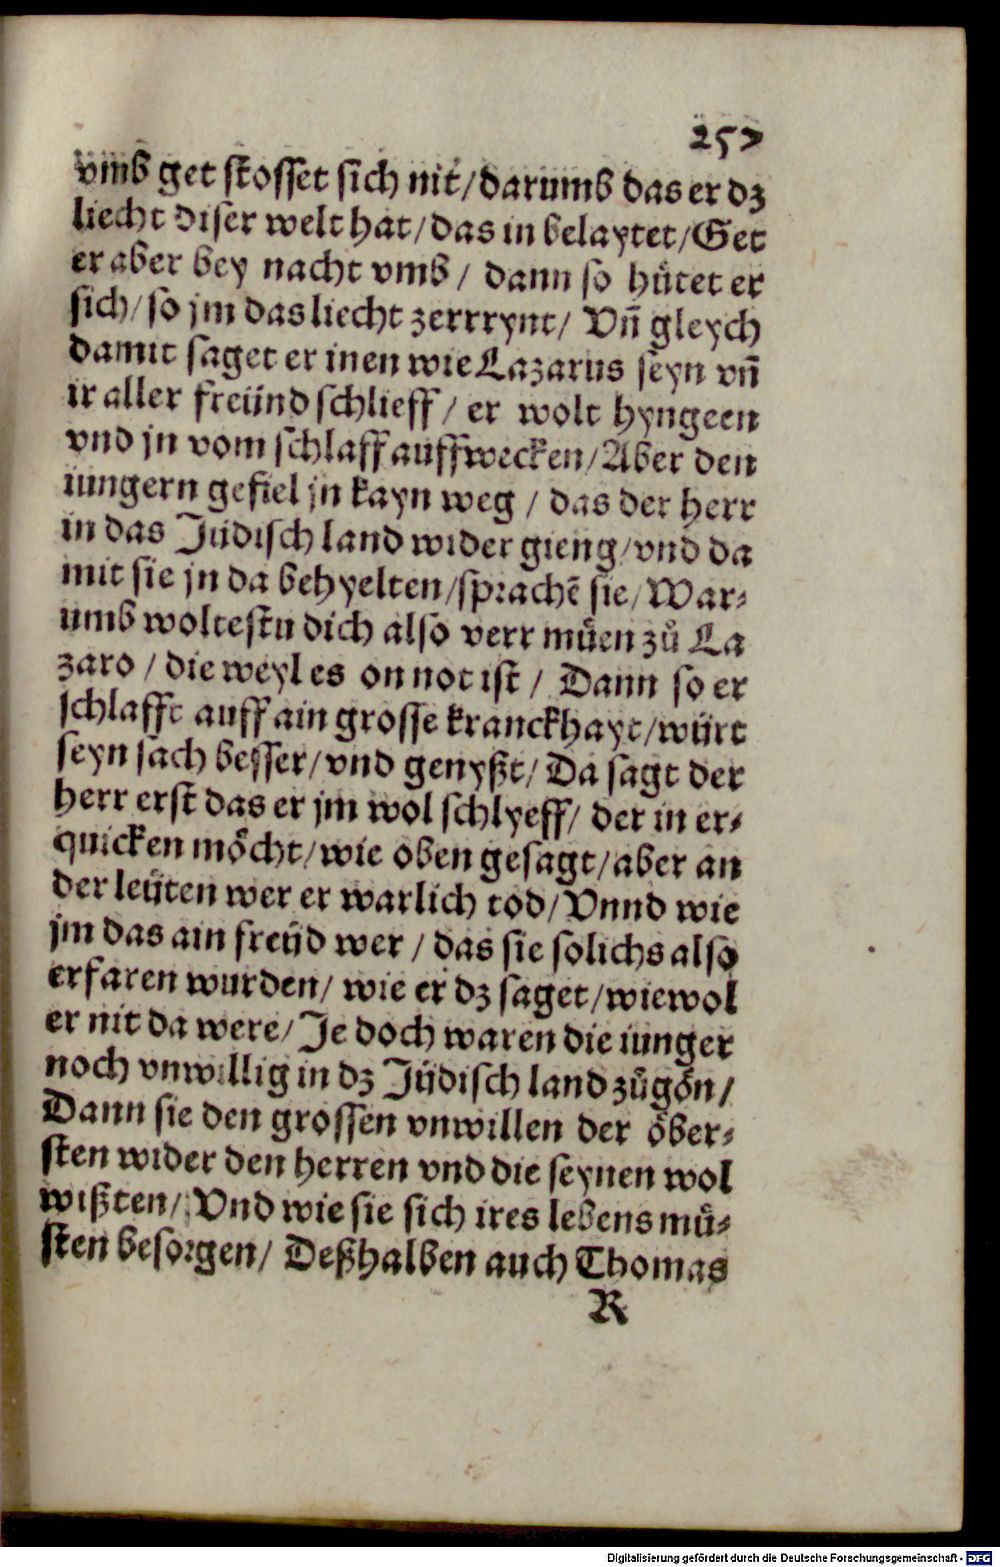 257
vmb get stosset sich nit/darumb das er dz
liecht diser welt hat/das in belaytet/Get
er aber bey nacht vmb/ dann so hütet er
sich/so jm das liecht zerrrynt/ Vñ gleych
damit saget er inen wie Lazarus seyn vñ
ir aller freünd schlieff/ er wolt hyngeen
vnd jn vom schlaff auffwecken/Aber den
iungern gefiel jn kayn weg/ das der herr
in das Jüdisch land wider gieng/vnd da
mit sie jn da behyelten/sprachẽ sie/War⸗
umb woltestu dich also verr müen zů La
zaro/ die weyl es on not ist/ Dann so er
schlafft auff ain grosse kranckhayt/würt
seyn sach besser/vnd genyßt/Da sagt der
herr erst das er jm wol schlyeff/ der in er⸗
quicken möcht/wie oben gesagt/aber an
der leüten wer er warlich tod/Vnnd wie
jm das ain freüd wer/ das sie solichs also
erfaren wurden/ wie er dz saget/wiewol
er nit da were/Je doch waren die iunger
noch vnwillig in dz Jüdisch land zůgön/
Dann sie den grossen vnwillen der öber⸗
sten wider den herren vnd die seynen wol
wißten/ Vnd wie sie sich ires lebens mů⸗
sten besorgen/ Deßhalben auch Thomas
R
Digitalisierung gefördert durch die Deutsche Forschungsgemeinschaft - DFG